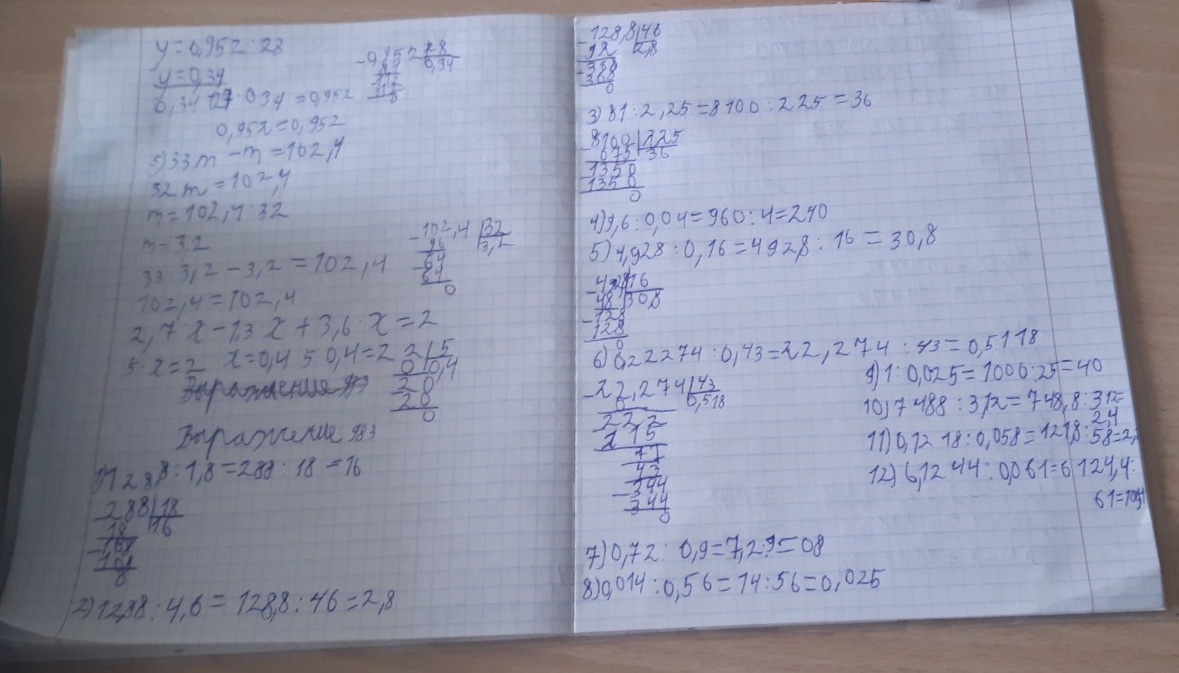 y = 0,952 : 28
y = 0,34
-0,952 28
0,34
112
0
= 0,952
0,952 = 0,952
5) 33m - m = 102,4
32m = 102,4
m = 102,4 : 32
m = 3,2
-102,4 32
96 3,2
-64
64
0
33 · 3,2 - 3,2 = 102,4
102,4 = 102,4
2,7 · x - 1,3 · x + 3,6 · x = 2
5 · x = 2 x = 0,4 5 · 0,4 = 2
2 5
0 0,4
20
20
0
Выражение 983
1) 28,8 : 1,8 = 288 : 18 = 16
-288 18
18 16
-108
108
0
2) 12,88 : 4,6 = 128,8 : 46 = 2,8
-128,8 46
92 2,8
-368
368
0
3) 81 : 2,25 = 8100 : 225 = 36
-8100 225
675 36
-1350
1350
0
4) 9,6 : 0,04 = 960 : 4 = 240
5) 4,928 : 0,16 = 492,8 : 16 = 30,8
16
48 30,8
-128
128
0
6) 0,22274 : 0,43 = 22,274 : 43 = 0,5118
-22,274 43
0 0,518
222
215
77
43
-344
344
0
7) 0,72 : 0,9 = 7,2 : 9 = 08
8) 0,014 : 0,56 = 14 : 56 = 0,025
9) 1 : 0,025 = 1000 : 25 = 40
10) 7488 : 3,12 = 748,8 : 312 =
2,4
11) 0,1218 : 0,058 = 121,8 : 58 = 2,
12) 6,1244 : 0,061 = 6124,4 :
61 =